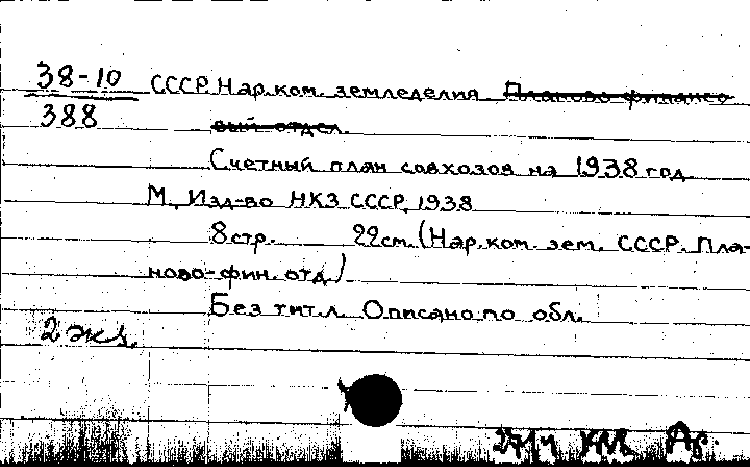 38-10 СССР. Нар. ком. земледелия Планово-финансо
388 вый отдел.
Счетный план совхозов на 1938 год
М., Изд-во НКЗ СССР, 1938
8 стр. 22 см. (Нар. ком. зем. СССР. Пла-
ново-фин. отд.)
Без тит. л. Описано по обл.
2 экз.